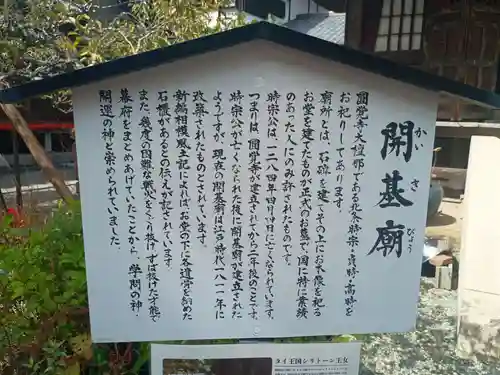 開基廟
かいきびょう
円覚寺大檀那である北条時宗・貞時・高時を
お祀りしてあります。
廟所とは、石碑を建てその上にお木像を祀る
お堂を建てたものが正式のお墓で、国に特に業績
のあった人にのみ許されたものです。
時宗公は一二八四年四月四日に亡くなられています。
つまりは、円覚寺が建立されてから二年後のことです。
時宗公が亡くなられた後に開基廟が建立された
ようですが、現在の開基廟は江戸時代一八一一年に
改築されたものとされています。
新編相模風土記によれば、お堂の下に各遺骨を納めた
石櫃があると伝えが記されています。
また、幾度の困難な戦いをくり抜けずば抜けた才能で
幕府をまとめあげていたことから、学問の神、
開運の神と崇められていました。
タイ王国シリントーン王女